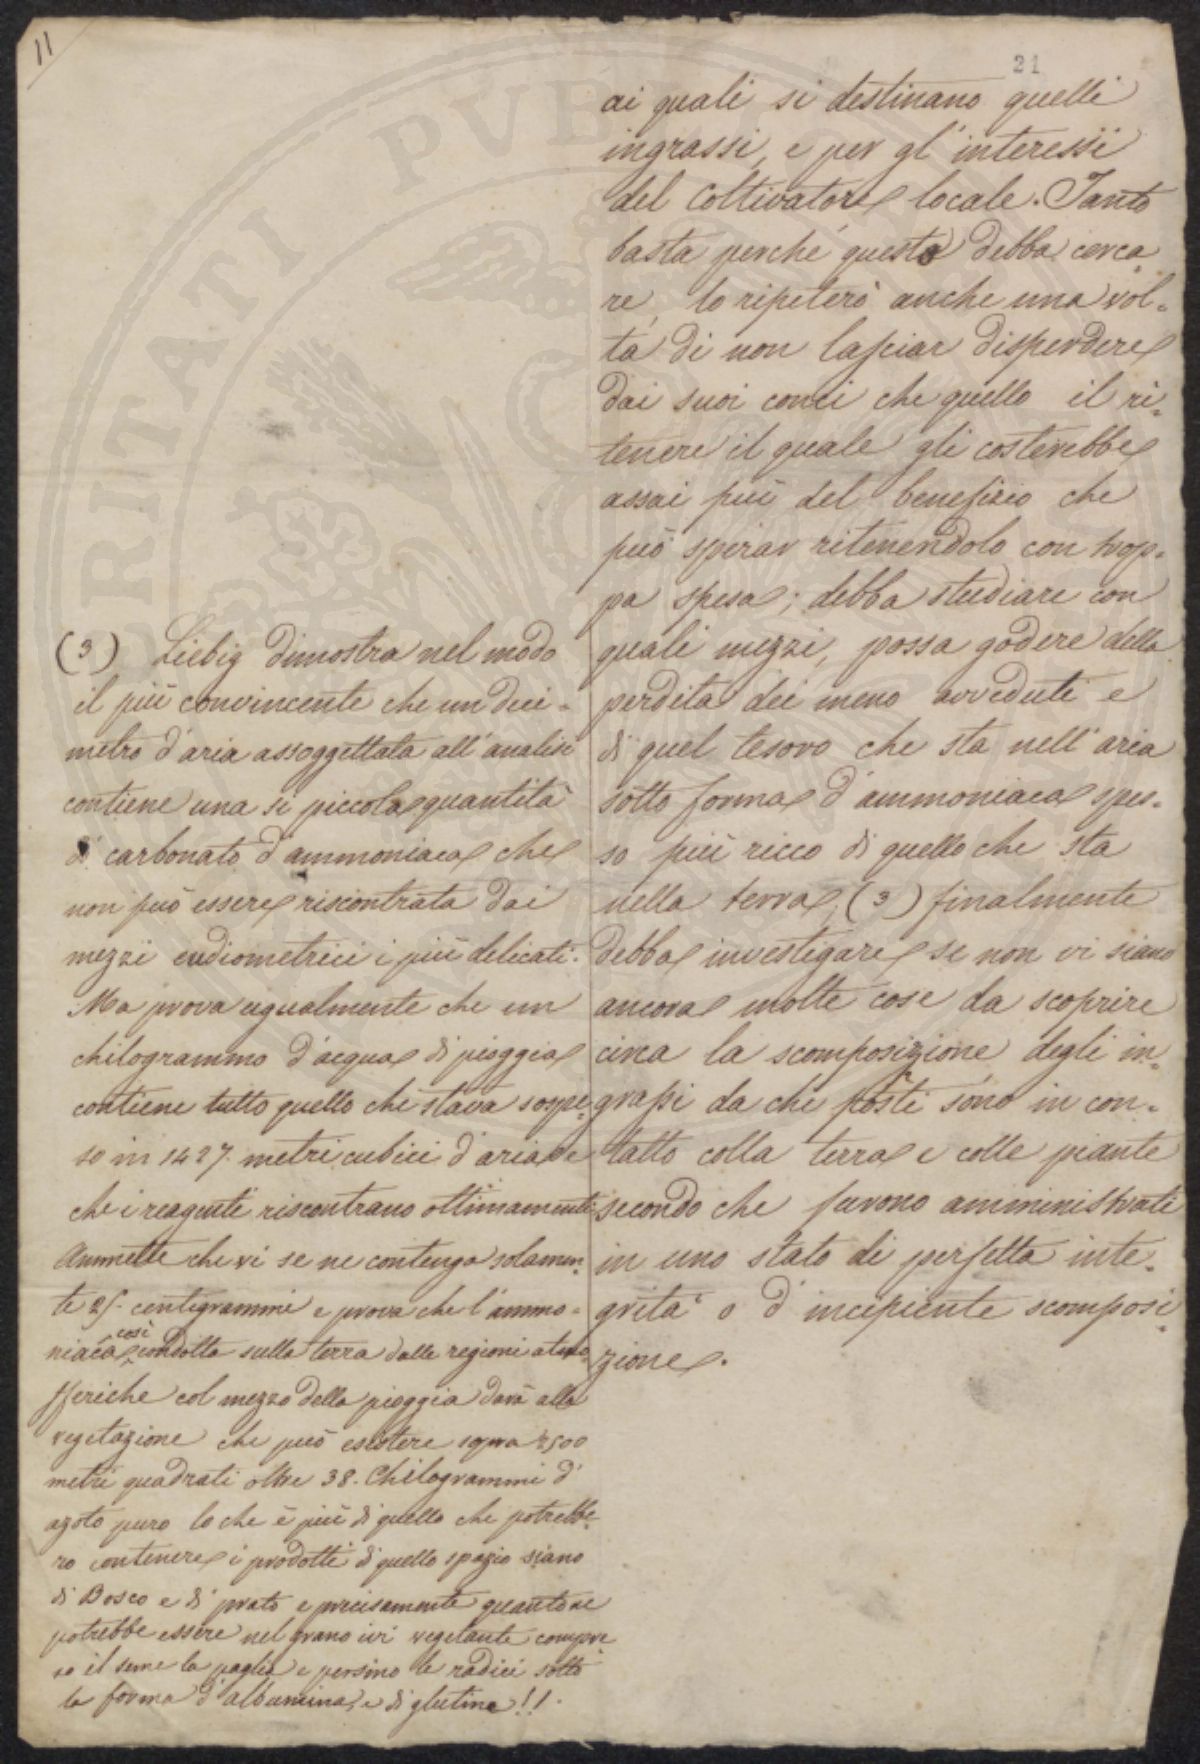 11
21
ai quali si destinano quelli
ingrassi, e per gl'interessi
del coltivatore locale. Tanto
basta perché questo debba cerca=
re, lo ripeterò anche una vol=
ta di non lasciar disperdere
dai suoi conci che quello il ri=
tenere il quale gli costerebbe
assai più del benefizio che
può sperar ritenendolo con trop=
pa spesa; debba studiare con
quali mezzi, possa godere della
perdita dei meno avveduti e
di quel tesoro che sta nell'aria
sotto forma d'ammoniaca spes=
so più ricco di quello che sta
nella terra, (3) finalmente
debba investigare se non vi siano
ancora molte cose da scoprire
circa la scomposizione degli in=
grassi da che posti sono in con=
tatto colla terra e colle piante
secondo che furono amministrati
in uno stato di perfetta inte=
grità o d'incipiente scomposi=
zione.
(3) Liebig dimostra nel modo
il più convincente che un deci=
metro d'aria assoggettata all'analisi
contiene una sì piccola quantità
di carbonato d'ammoniaca che
non può essere riscontrata dai
mezzi eudiometrici i più delicati.
Ma prova ugualmente che un
chilogrammo d'acqua di pioggia
contiene tutto quello che stava sospe=
so in 1427. metri cubici d'aria e
che i reagenti riscontrano ottimamente
Ammette che vi se ne contenga solamen=
te 25. centigrammi e prova che l'ammo=
niaca così condotta sulla terra dalle regioni atmo=
sferiche col mezzo della pioggia darà alla
vegetazione che può esistere sopra 2500
metri quadrati oltre 38. Chilogrammi d'
azoto puro lo che è più di quello che potrebbe=
ro contenere i prodotti di quello spazio siano
di Bosco e di prato e precisamente quanto ne
potrebbe essere nel grano ivi vegetante compre
so il seme la paglia e persino le radici sotto
la forma d'albumina, e di glutine!!.
PVB
RITATI